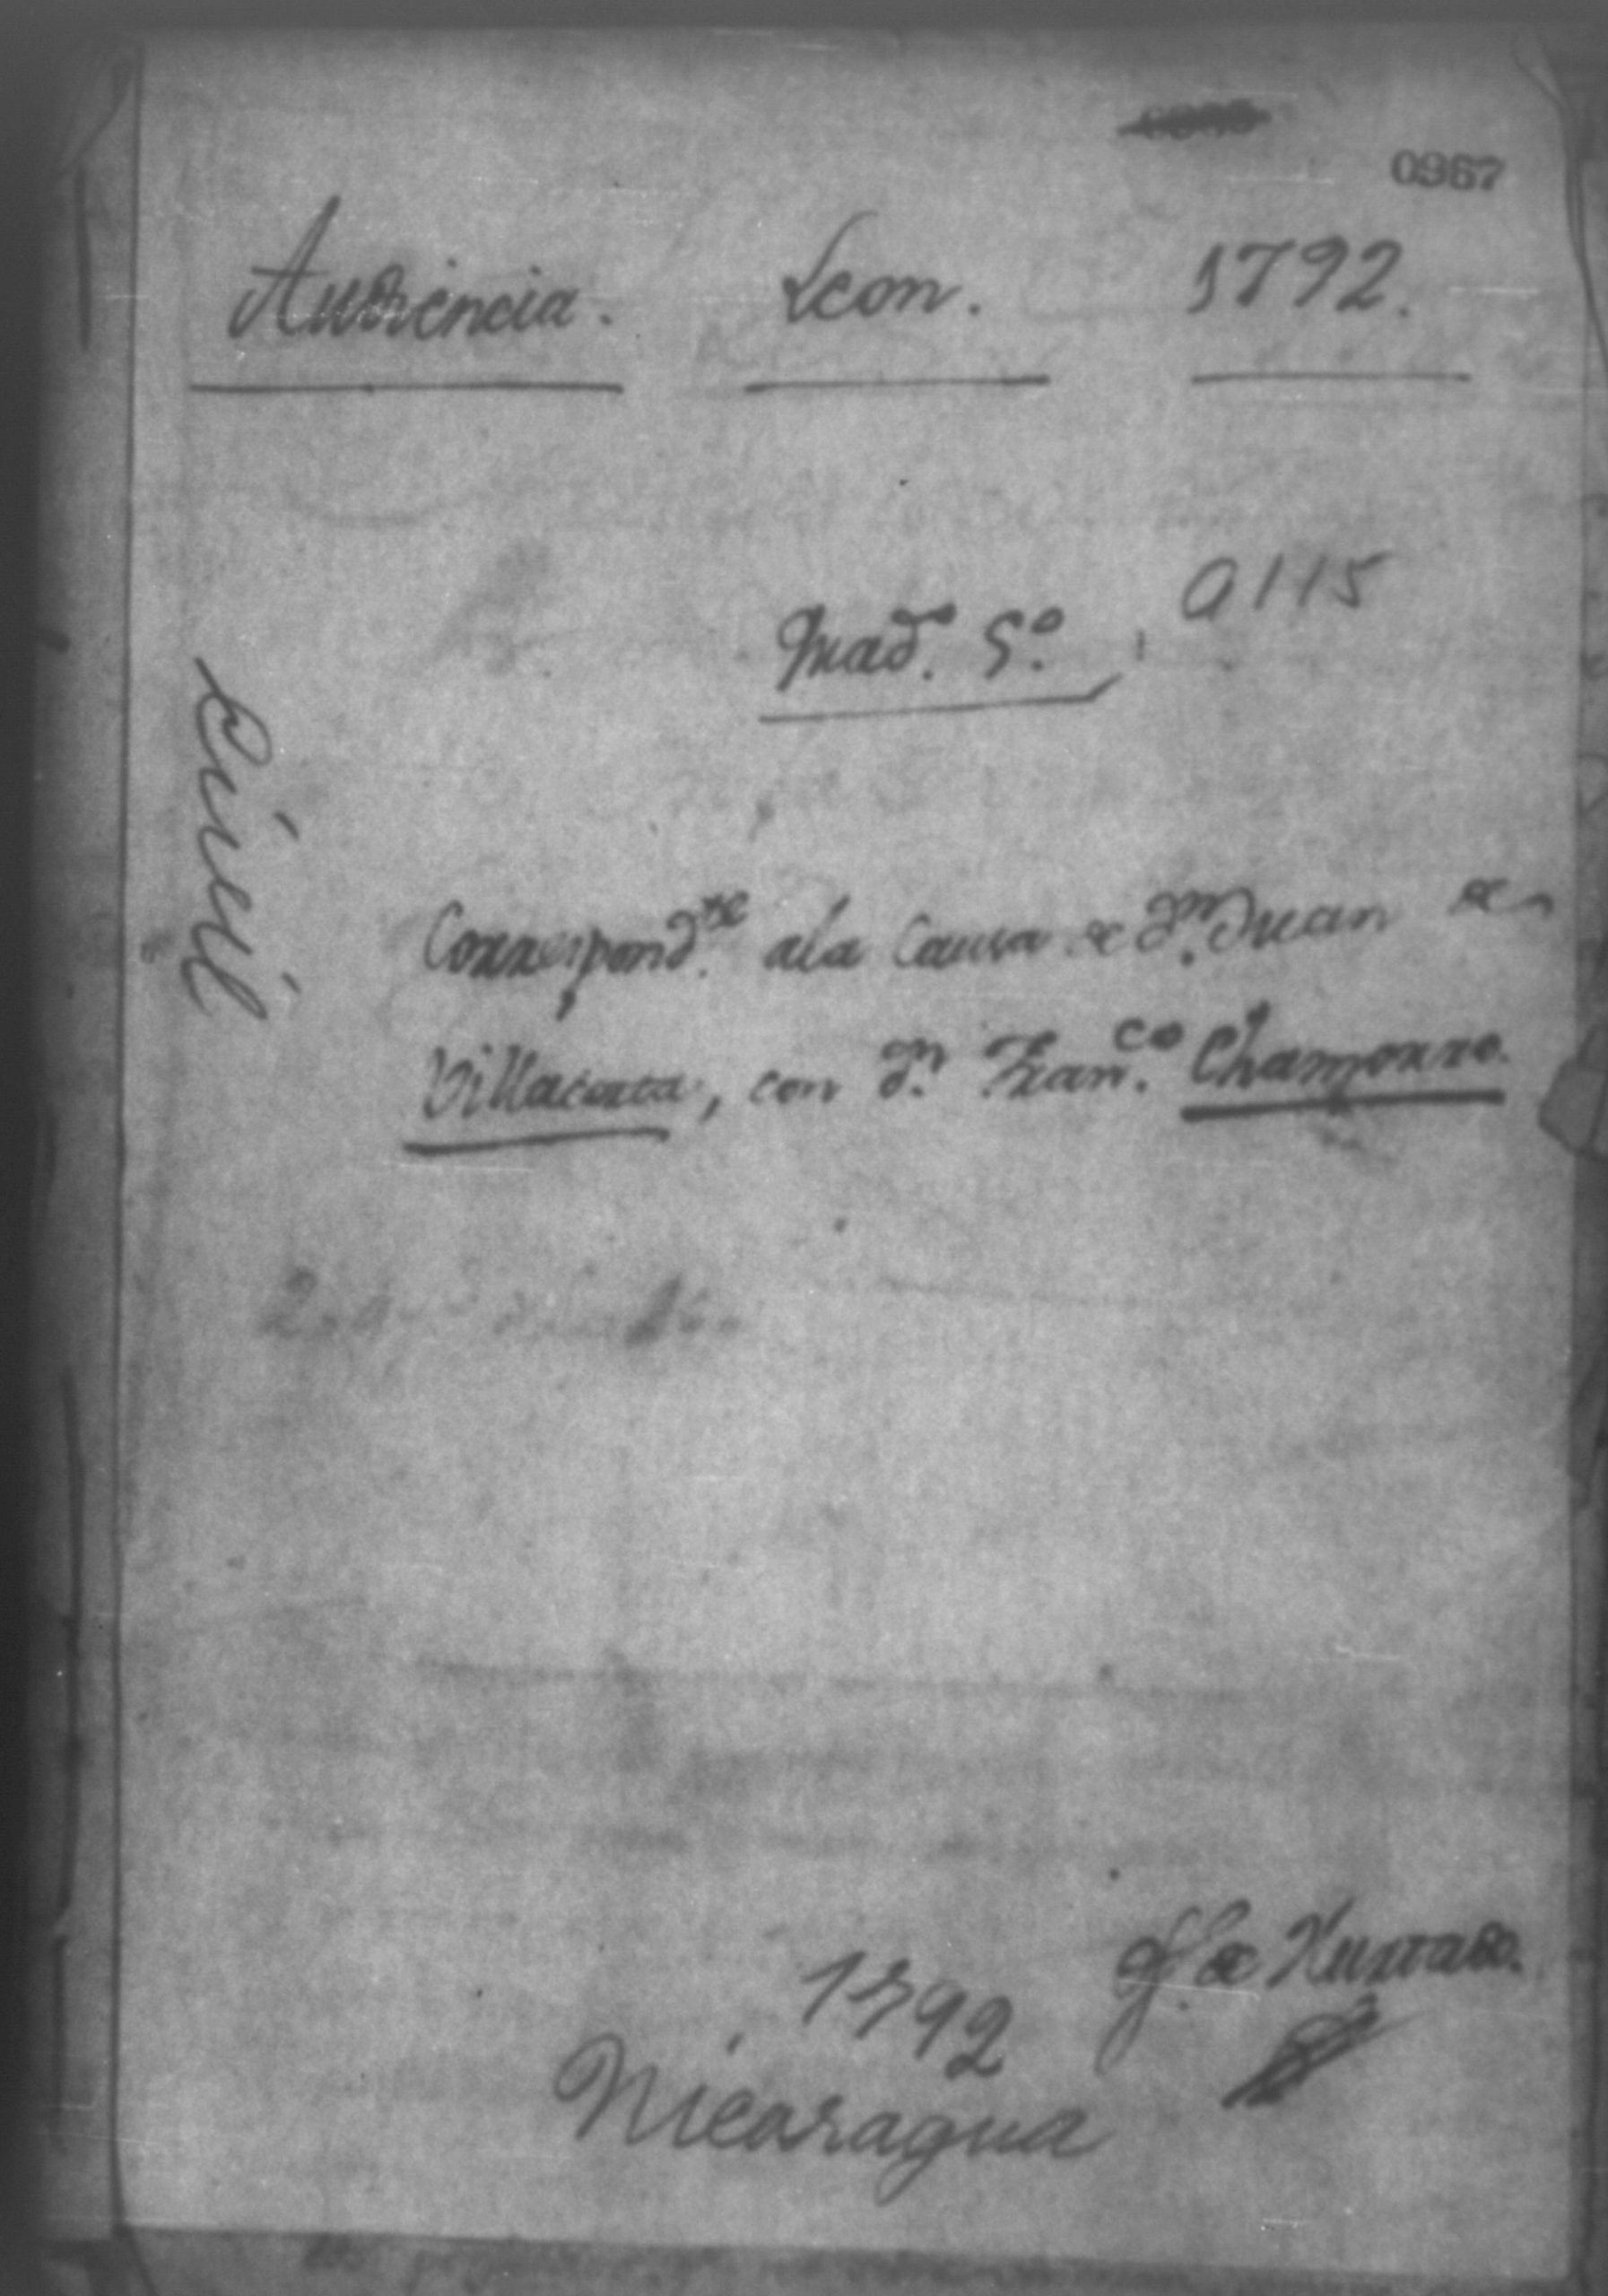 0967
Audiencia. Leon. 1792.
0115
Quad.º 5.º
Civil
Correspond.te ala Causa de D.n Juan de
Villacorta, con D.n Fran.co Chamorro.
of.º de Hurtado.
1792
Nicaragua